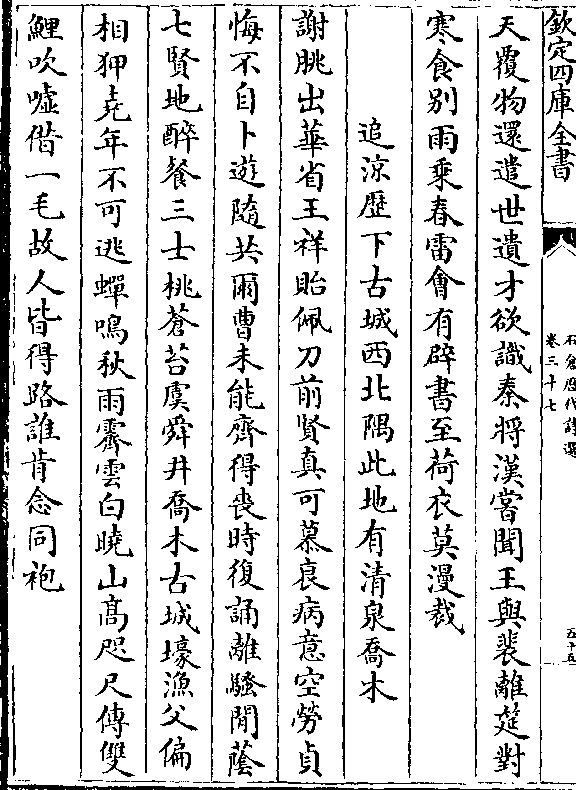 欽定四庫全書
石倉歷代詩選
卷三十七
五十五
天覆物還遣世遺才欲識秦將漢嘗聞王與裴離筵對
寒食别雨乘春雷會有辟書至荷衣莫漫裁
追涼歷下古城西北隅此地有清泉喬木
謝朓出華省王祥貽佩刀前賢真可慕衰病意空勞貞
悔不自卜遊隨共爾曹未能齊得喪時復誦離騷閒蔭
七賢地醉餐三士桃蒼苔虞舜井喬木古城壕漁父偏
相狎堯年不可逃蟬鳴秋雨霽雲白曉山髙咫尺傳雙
鯉吹噓借一毛故人皆得路誰肯念同袍